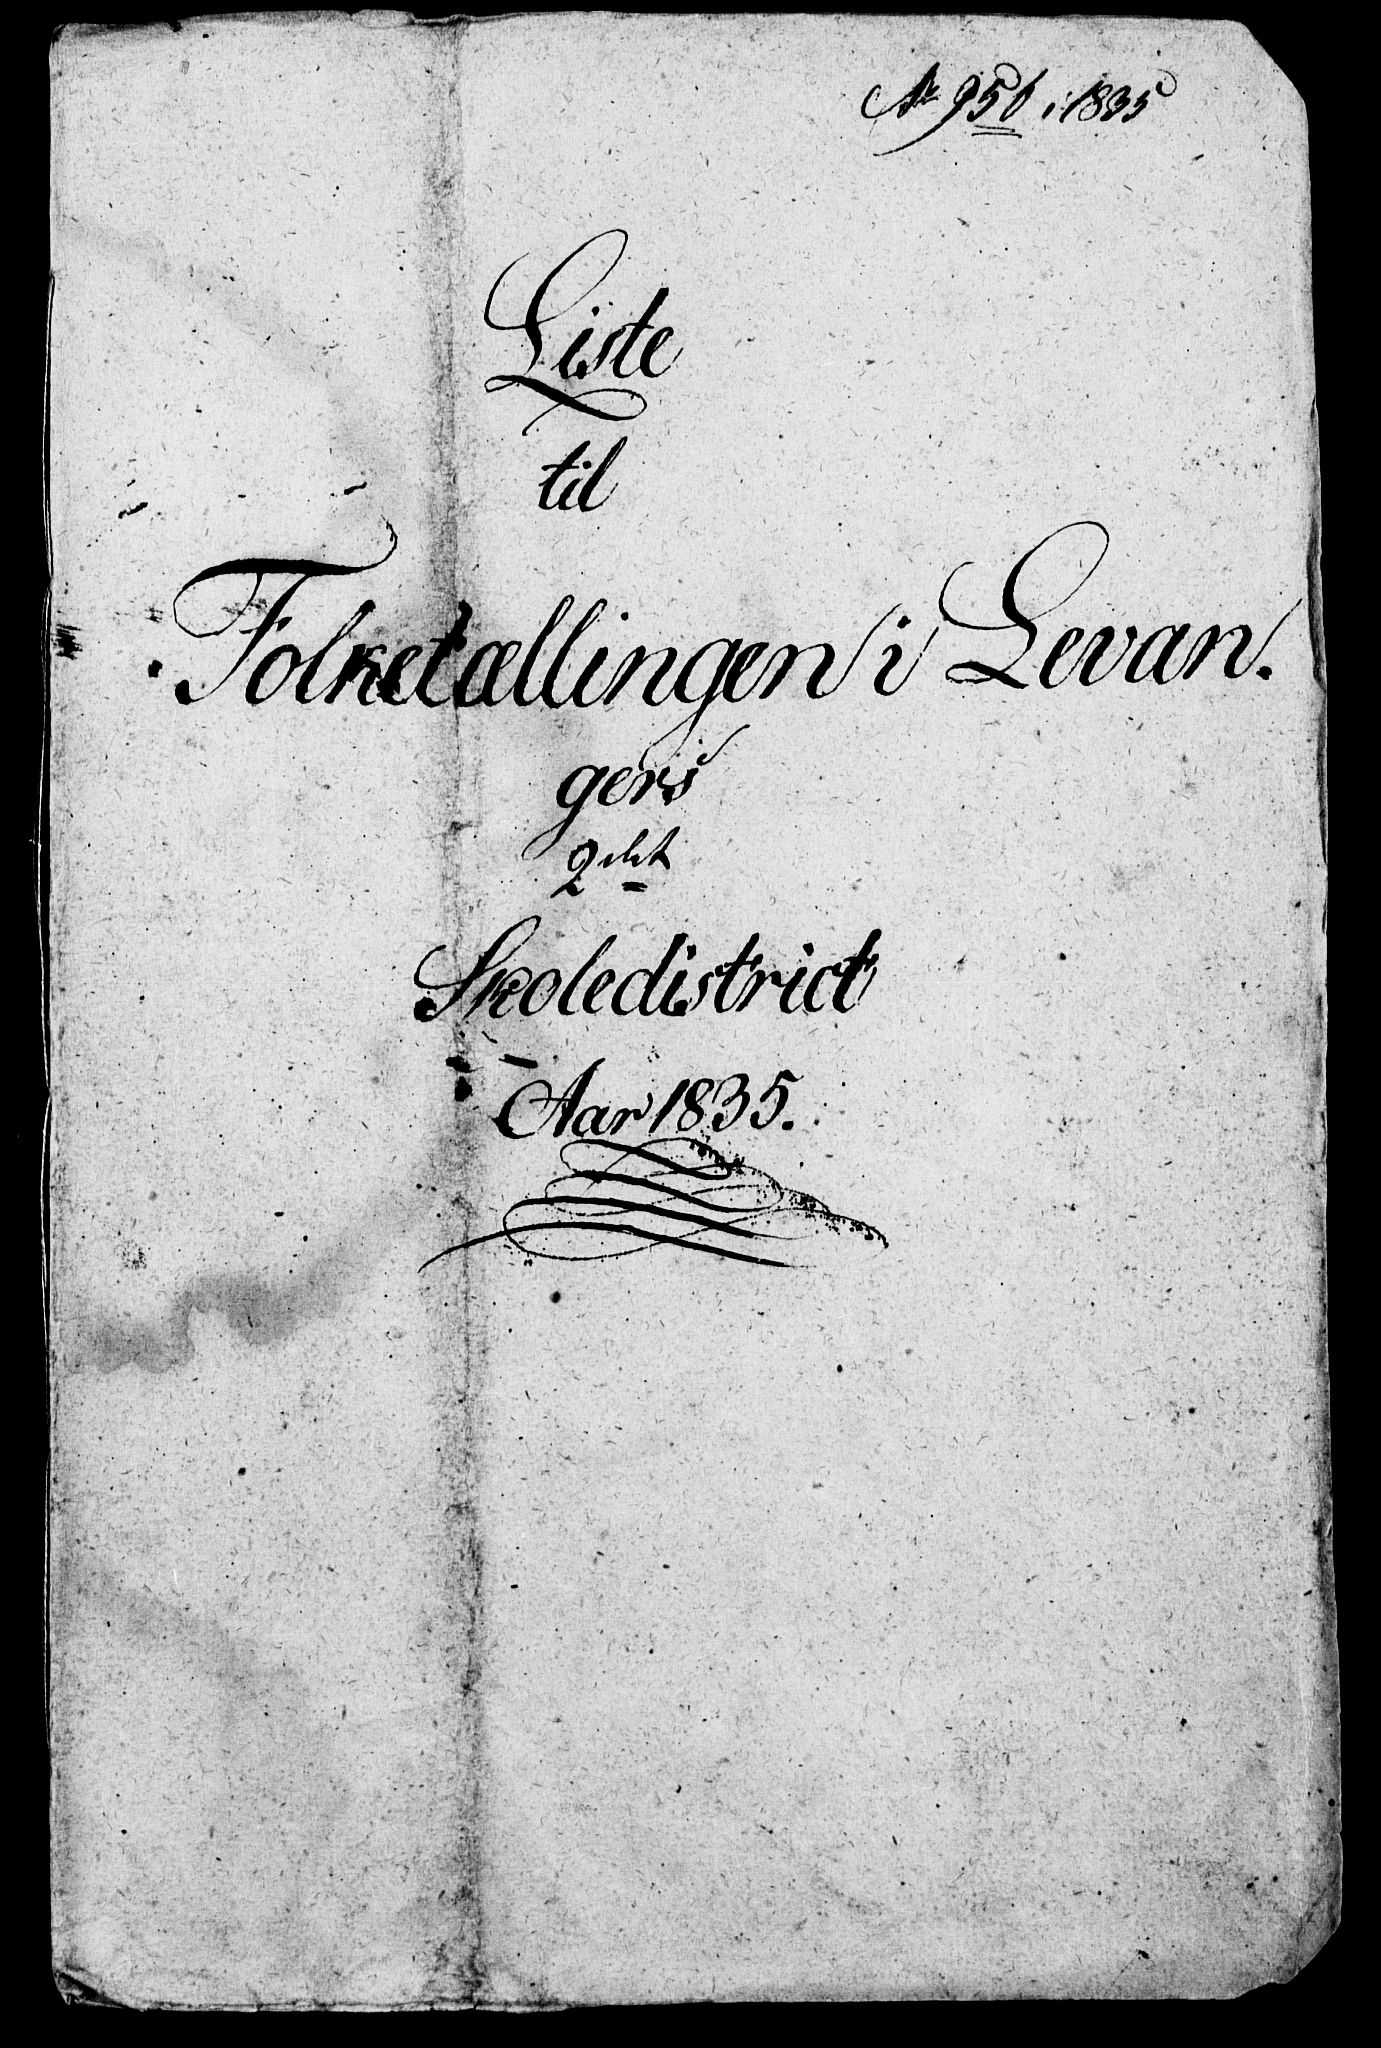 No 956 i 1835
Liste
til
Folketællingen i Levan.
gers
2det
Skoledistrict
Aar 1835.